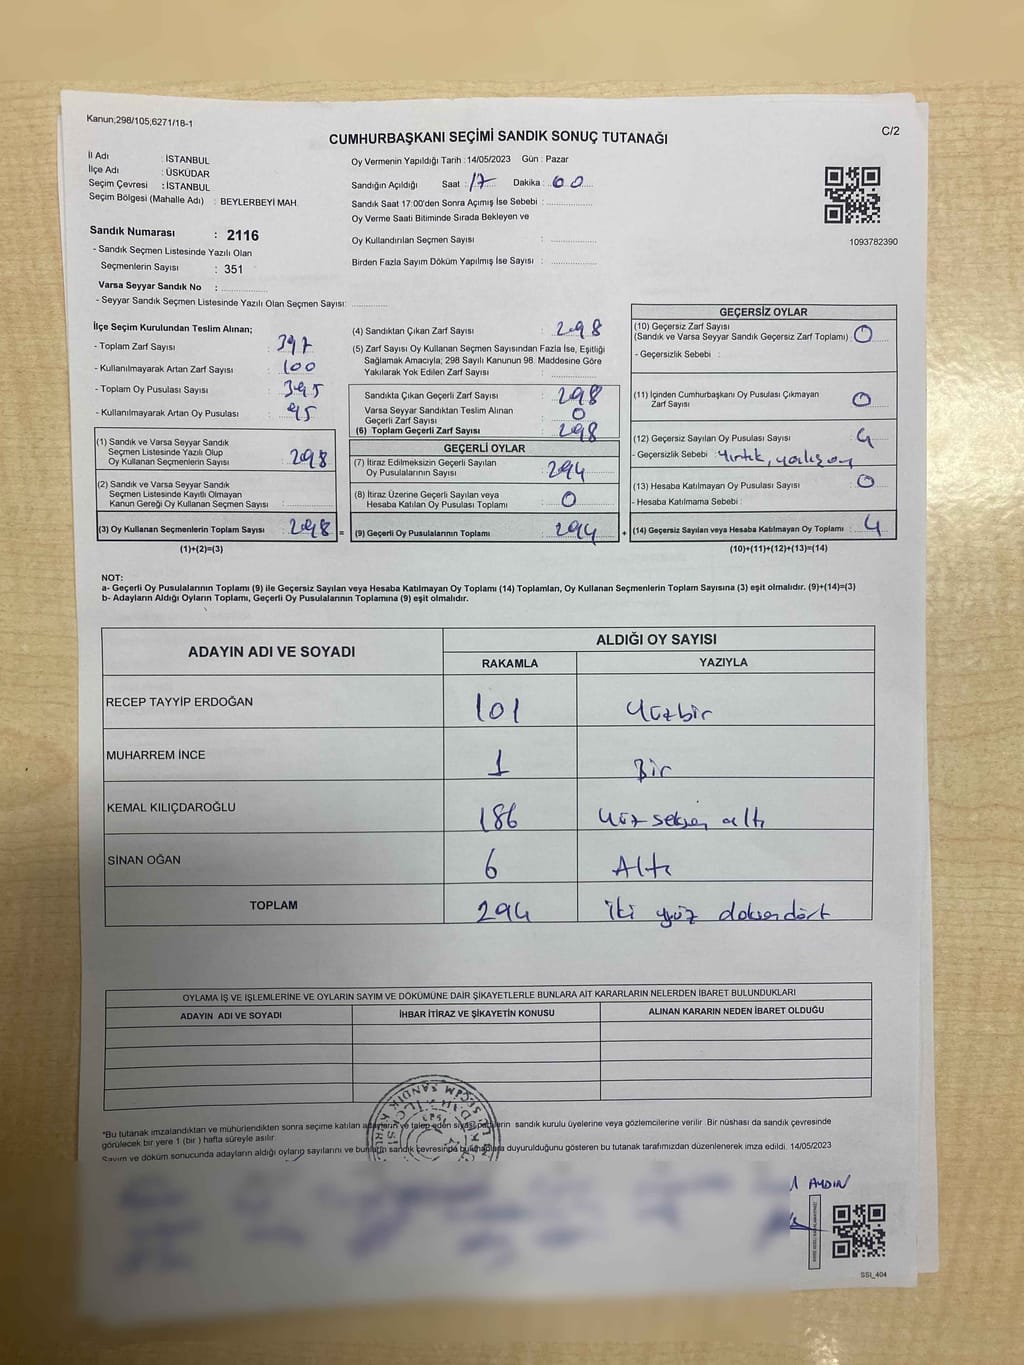 Kanun;298/105,6271/18-1
CUMHURBAŞKANI SEÇİMİ SANDIK SONUÇ TUTANAĞI
C/2
İl Adı : İSTANBUL
İlçe Adı : ÜSKÜDAR
Seçim Çevresi : İSTANBUL
Seçim Bölgesi (Mahalle Adı) : BEYLERBEYİ MAH.
Sandık Numarası : 2116
- Sandık Seçmen Listesinde Yazılı Olan
Seçmenlerin Sayısı : 351
Varsa Seyyar Sandık No :
- Seyyar Sandık Seçmen Listesinde Yazılı Olan Seçmen Sayısı:
Oy Vermenin Yapıldığı Tarih : 14/05/2023 Gün : Pazar
Sandığın Açıldığı Saat : 17 Dakika : 00
Sandık Saat 17:00'den Sonra Açımış İse Sebebi :
Oy Verme Saati Bitiminde Sırada Bekleyen ve
Oy Kullandırılan Seçmen Sayısı :
Birden Fazla Sayım Döküm Yapılmış İse Sayısı :
1093782390
İlçe Seçim Kurulundan Teslim Alınan;
- Toplam Zarf Sayısı : 397
- Kullanılmayarak Artan Zarf Sayısı : 100
- Toplam Oy Pusulası Sayısı : 395
- Kullanılmayarak Artan Oy Pusulası : 95
(1) Sandık ve Varsa Seyyar Sandık
Seçmen Listesinde Yazılı Olup
Oy Kullanan Seçmenlerin Sayısı : 298
(2) Sandık ve Varsa Seyyar Sandık
Seçmen Listesinde Kayıtlı Olmayan
Kanun Gereği Oy Kullanan Seçmen Sayısı :
(3) Oy Kullanan Seçmenlerin Toplam Sayısı : 298 =
(1)+(2)=(3)
(4) Sandıktan Çıkan Zarf Sayısı : 298
(5) Zarf Sayısı Oy Kullanan Seçmen Sayısından Fazla İse, Eşitliği
Sağlamak Amacıyla; 298 Sayılı Kanunun 98. Maddesine Göre
Yakılarak Yok Edilen Zarf Sayısı :
Sandıkta Çıkan Geçerli Zarf Sayısı : 298
Varsa Seyyar Sandıktan Teslim Alınan
Geçerli Zarf Sayısı : 0
(6) Toplam Geçerli Zarf Sayısı : 298
GEÇERLİ OYLAR
(7) İtiraz Edilmeksizin Geçerli Sayılan
Oy Pusulalarının Sayısı : 294
(8) İtiraz Üzerine Geçerli Sayılan veya
Hesaba Katılan Oy Pusulası Toplamı : 0
(9) Geçerli Oy Pusulalarının Toplamı : 294 +
GEÇERSİZ OYLAR
(10) Geçersiz Zarf Sayısı
(Sandık ve Varsa Seyyar Sandık Geçersiz Zarf Toplamı) : 0
- Geçersizlik Sebebi :
(11) İçinden Cumhurbaşkanı Oy Pusulası Çıkmayan
Zarf Sayısı : 0
(12) Geçersiz Sayılan Oy Pusulası Sayısı : 4
- Geçersizlik Sebebi : Yırtık,
(13) Hesaba Katılmayan Oy Pusulası Sayısı : 0
- Hesaba Katılmama Sebebi :
(14) Geçersiz Sayılan veya Hesaba Katılmayan Oy Toplamı : 4
(10)+(11)+(12)+(13)=(14)
NOT:
a- Geçerli Oy Pusulalarının Toplamı (9) ile Geçersiz Sayılan veya Hesaba Katılmayan Oy Toplamı (14) Toplamları, Oy Kullanan Seçmenlerin Toplam Sayısına (3) eşit olmalıdır. (9)+(14)=(3)
b- Adayların Aldığı Oyların Toplamı, Geçerli Oy Pusulalarının Toplamına (9) eşit olmalıdır.
ADAYIN ADI VE SOYADI
ALDIĞI OY SAYISI
RAKAMLA YAZIYLA
RECEP TAYYİP ERDOĞAN 101 Yüzbir
MUHARREM İNCE 1 Bir
KEMAL KILIÇDAROĞLU 186 Yüz seksen altı
SİNAN OĞAN 6 Altı
TOPLAM 294 İki yüz doksandört
OYLAMA İŞ VE İŞLEMLERİNE VE OYLARIN SAYIM VE DÖKÜMÜNE DAİR ŞİKAYETLERLE BUNLARA AİT KARARLARIN NELERDEN İBARET BULUNDUKLARI
ADAYIN ADI VE SOYADI İHBAR İTİRAZ VE ŞİKAYETİN KONUSU ALINAN KARARIN NEDEN İBARET OLDUĞU
*Bu tutanak imzalandıktan ve mühürlendikten sonra seçime katılan adayların ve talep eden siyasi partilerin sandık kurulu üyelerine veya gözlemcilerine verilir. Bir nüshası da sandık çevresinde
görülecek bir yere 1 (bir ) hafta süreyle asılır.
Sayım ve döküm sonucunda adayların aldığı oyların sayılarını ve bunların sandık çevresinde bulunanlara duyurulduğunu gösteren bu tutanak tarafımızdan düzenlenerek imza edildi. 14/05/2023
AYDIN
SSI_404